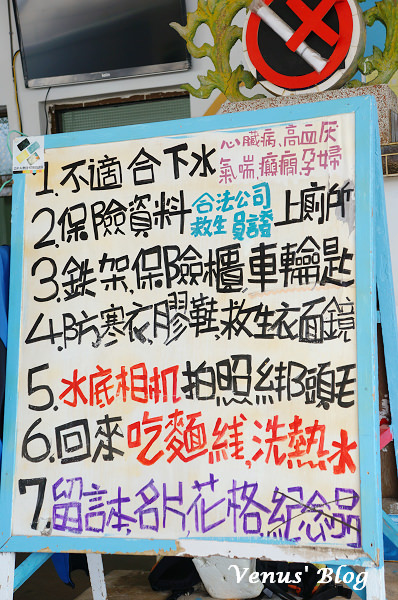 1.不適合下水 心臟病.高血厌
氣喘.癲癇.孕婦
2.保險資料 合法公司
救生員證 上廁所
3.鉄架.保險櫃.車輪匙
4.防寒衣.膠鞋.救生衣面鏡
5.水底相机拍照綁頭毛
6.回來吃麵线.洗熱水
7.留言本.名片.花格.紀念品
Venus' Blog